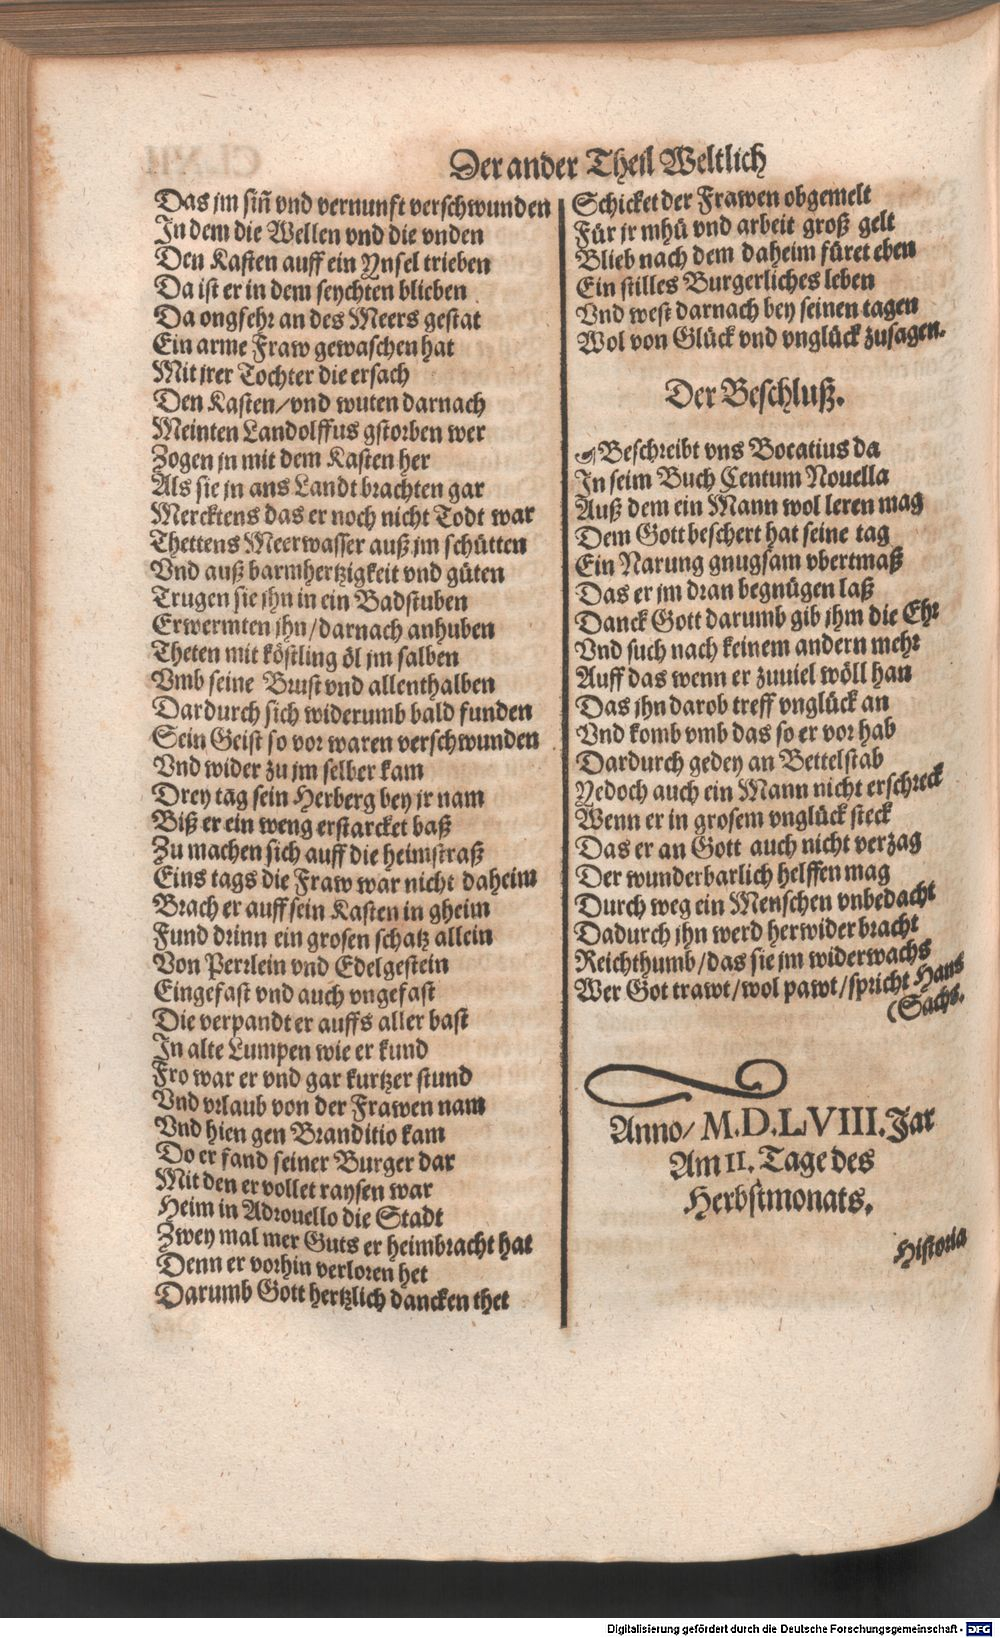 Der ander Theil Weltlich
Das jm siñ vnd vernunft verschwunden
In dem die Wellen vnd die vnden
Den Kasten auff ein Ynsel trieben
Da ist er in dem seychten blieben
Da ongfehr an des Meers gestat
Ein arme Fraw gewaschen hat
Mit jrer Tochter die ersach
Den Kasten/vnd wuten darnach
Meinten Landolffus gstorben wer
Zogen jn mit dem Kasten her
Als sie jn ans Landt brachten gar
Mercktens das er noch nicht Todt war
Thettens Meerwasser auß jm schütten
Vnd auß barmhertzigkeit vnd güten
Trugen sie jhn in ein Badstuben
Erwermten jhn/darnach anhuben
Theten mit köstling öl jm salben
Vmb seine Brust vnd allenthalben
Dardurch sich widerumb bald funden
Sein Geist so vor waren verschwunden
Vnd wider zu jm selber kam
Drey tag sein Herberg bey jr nam
Biß er ein weng erstarcket baß
Zu machen sich auff die heimstraß
Eins tags die Fraw war nicht daheim
Brach er auff sein Kasten in gheim
Fund drinn ein grosen schatz allein
Von Perrlein vnd Edelgestein
Eingefast vnd auch vngefast
Die verpandt er auffs aller bast
In alte Lumpen wie er kund
Fro war er vnd gar kurtzer stund
Vnd vrlaub von der Frawen nam
Vnd hien gen Branditio kam
Do er fand seiner Burger dar
Mit den er vollet raysen war
Heim in Adrouello die Stadt
Zwey mal mer Guts er heimbracht hat
Denn er vorhin verloren het
Darumb Gott hertzlich dancken thet
Schicket der Frawen obgemelt
Für jr mhü vnd arbeit groß gelt
Blieb nach dem daheim füret eben
Ein stilles Burgerliches leben
Vnd west darnach bey seinen tagen
Wol von Glück vnd vnglück zusagen.
Der Beschluß.
Beschreibt vns Bocatius da
In seim Buch Centum Nouella
Auß dem ein Mann wol leren mag
Dem Gott beschert hat seine tag
Ein Narung gnugsam vbertmaß
Das er jm dran begnügen laß
Danck Gott darumb gib jhm die Ehr
Vnd such nach keinem andern mehr
Auff das wenn er zuuiel wöll han
Das jhn darob treff vnglück an
Vnd komb vmb das so er vor hab
Dardurch gedey an Bettelstab
Yedoch auch ein Mann nicht erschreck
Wenn er in grosem vnglück steck
Das er an Gott auch nicht verzag
Der wunderbarlich helffen mag
Durch weg ein Menschen vnbedacht
Dadurch jhn werd herwider bracht
Reichthumb/das sie jm widerwachs
Wer Got trawt/wol pawt/spricht Hans
(Sachs.
Anno/M.D.LVIII.Jar
Am II. Tage des
Herbstmonats.
Historia
Digitalisierung gefördert durch die Deutsche Forschungsgemeinschaft - DFG